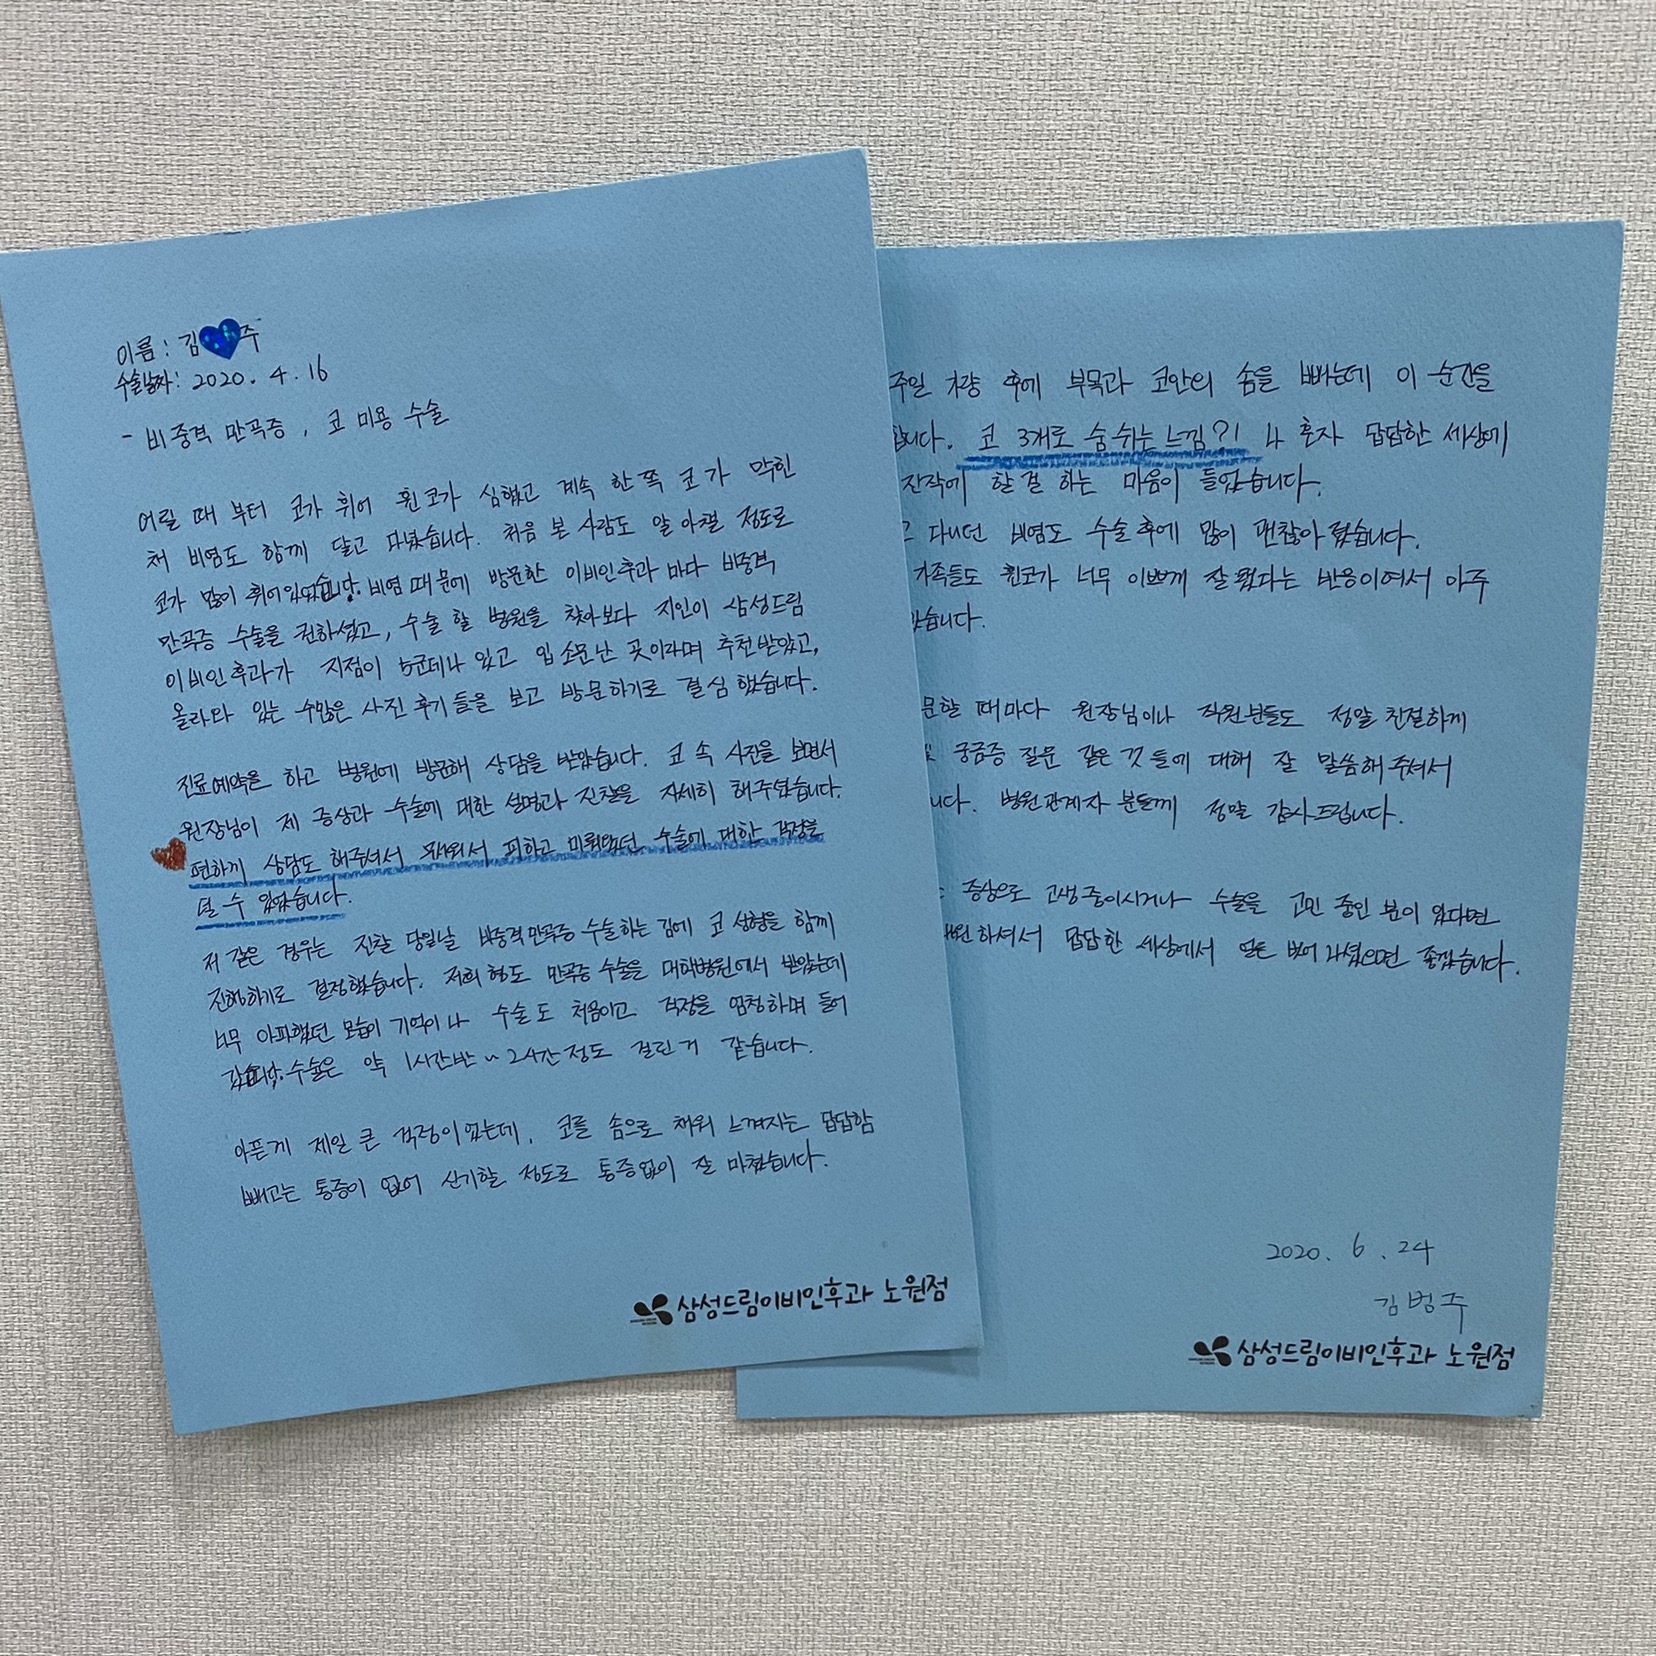 이름 : 김 주
수술날짜 : 2020. 4. 16
- 비중격 만곡증, 코 미용 수술
어릴 때 부터 코가 휘어 휜코가 심했고 계속 한쪽 코가 막힌
채 비염도 함께 달고 다녔습니다. 처음 본 사람도 알아챌 정도로
코가 많이 휘어있었습니다. 비염 때문에 방문한 이비인후과 마다 비중격
만곡증 수술을 권하셨고, 수술 할 병원을 찾아보다 지인이 삼성드림
이비인후과가 지점이 5군데나 있고 입소문난 곳이라며 추천받았고,
올라와 있는 수많은 사진 후기들을 보고 방문하기로 결심했습니다.
진료예약을 하고 병원에 방문해 상담을 받았습니다. 코 속 사진을 보면서
원장님이 제 증상과 수술에 대한 설명과 진찰을 자세히 해주셨습니다.
편하게 상담도 해주셔서 무서워서 피하고 미뤄왔던 수술에 대한 걱정을
덜 수 있었습니다.
저 같은 경우는 진찰 당일날 비중격만곡증 수술하는 김에 코 성형을 함께
진행하기로 결정했습니다. 저희 형도 만곡증 수술을 대학병원에서 받았는데
너무 아파했던 모습이 기억이나 수술도 처음이고 걱정을 엄청하며 들어
갔습니다. 수술은 약 1시간반 ~ 2시간 정도 걸린거 같습니다.
아픈게 제일 큰 걱정이었는데, 코를 솜으로 채워 느껴지는 답답함
빼고는 통증이 없어 신기할 정도로 통증없이 잘 마쳤습니다.
삼성드림이비인후과 노원점
주일 후에 부목과 코안의 솜을 빼는데 이 순간을
합니다. 코 3개로 숨쉬는느낌?! 나 혼자 답답한 세상에
진작에 할걸 하는 마음이 들었습니다.
고 다니던 비염도 수술 후에 많이 괜찮아졌습니다.
가족들도 휜코가 너무 이쁘게 잘 됐다는 반응이여서 아주
았습니다.
문할 때마다 원장님이나 직원분들도 정말 친절하게
및 궁금증 질문 같은 것들에 대해 잘 말씀해주셔서
니다. 병원관계자 분들께 정말 감사드립니다.
증상으로 고생중이시거나 수술을 고민 중인 분이 있다면
내원하셔서 답답한 세상에서 벗어나셨으면 좋겠습니다.
2020. 6. 24
김범주
삼성드림이비인후과 노원점